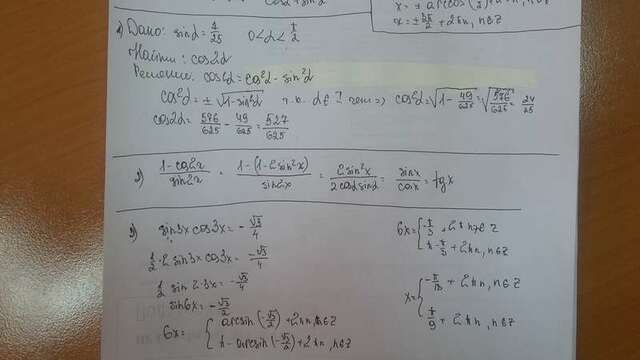 x = ± arccos
x = ± 5π/2 + 2πn, n∈Z
Дано: sinα = 7/25 0<α<π/2
Найти: cos2α
Решение: cos2α = cos²α - sin²α
cos²α = ± √(1-sin²α) т.к. α ∈ I чет => cos²α = √(1 - 49/625) = √(576/625) = 24/25
cos2α = 576/625 - 49/625 = 527/625
2) (1-cos2x)/sin2x = (1-(1-2sin²x))/sin2x = 2sin²x/(2cosα sinα) = sinx/cosx = tgx
3) sin3x cos3x = -√3/4
1/2 · 2 sin3x cos3x = -√3/4
1/2 sin 2·3x = -√3/4
sin6x = -√3/2
6x = { arcsin(-√3/2) + 2πn, n∈Z
π - arcsin(-√3/2) + 2πn, n∈Z
6x = { -π/3 + 2πn, n∈Z
π - π/3 + 2πn, n∈Z
x = { -π/18 + 2πn, n∈Z
π/9 + 2πn, n∈Z